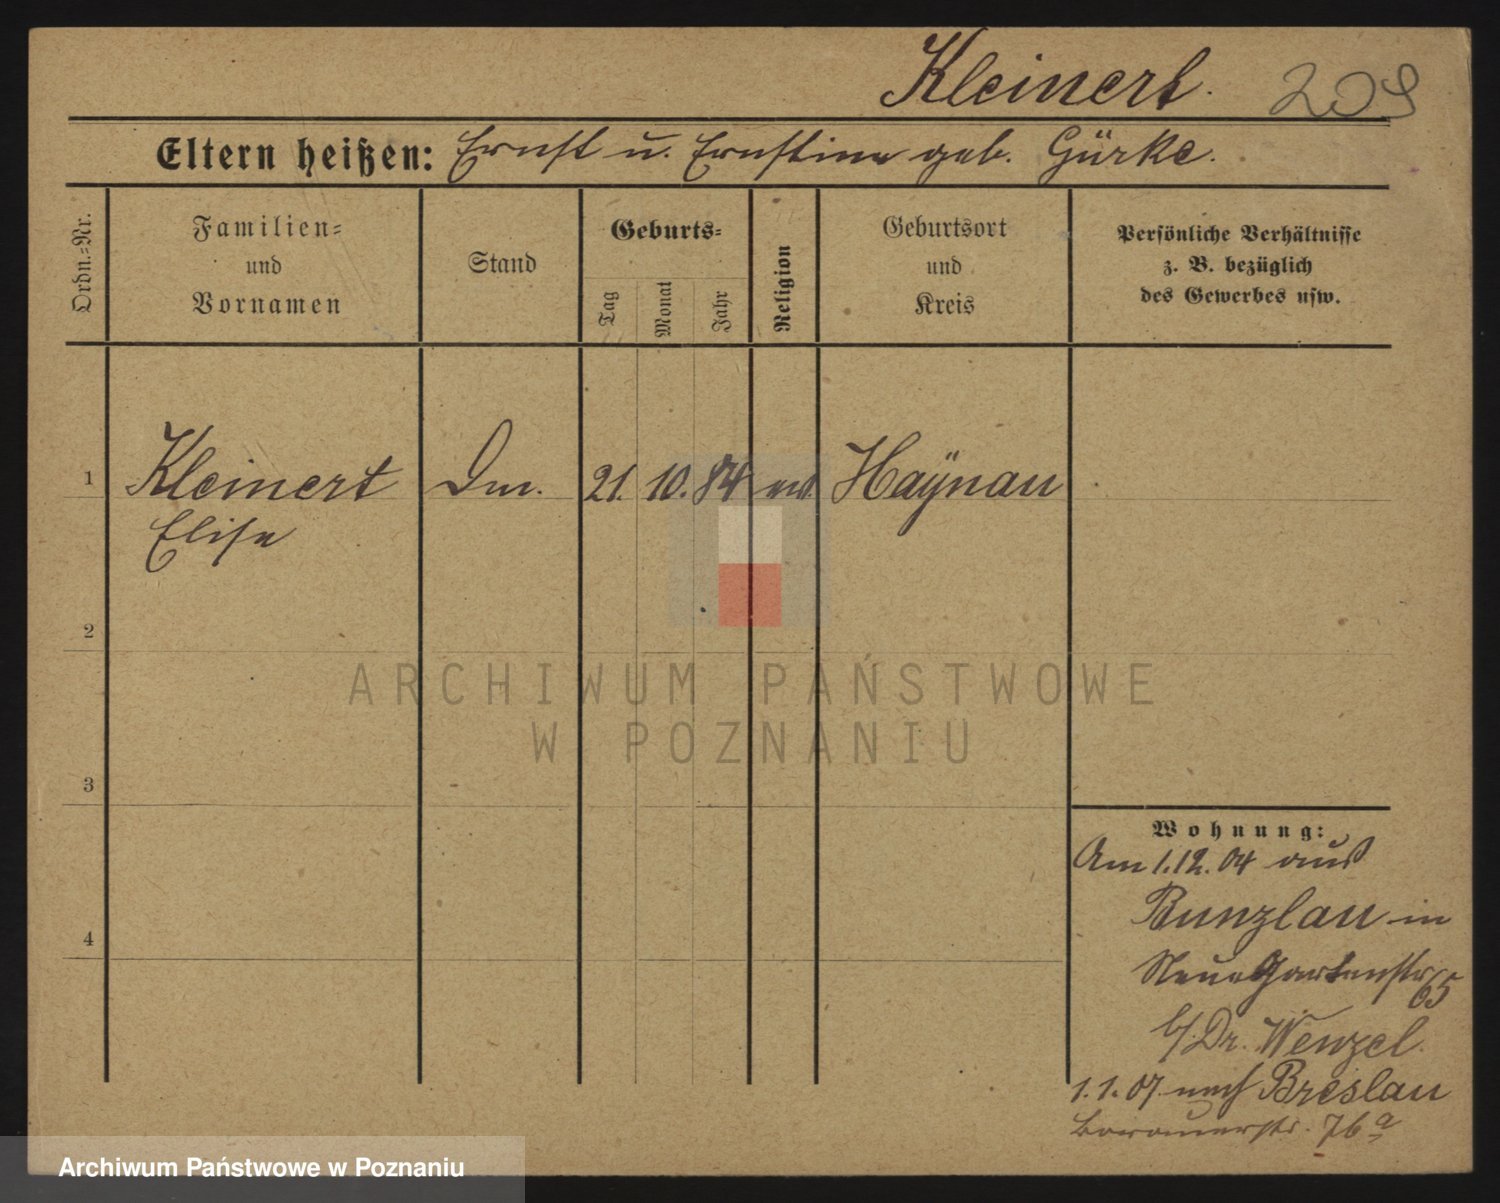 Kleinert. 209
Eltern heißen: Ernst u. Ernstine geb. Gürke.
Ordn.-Nr.
Familien-
und
Vornamen
Stand
Geburts-
Tag
Monat
Jahr
Religion
Geburtsort
und
Kreis
Persönliche Verhältnisse
z. B. bezüglich
des Gewerbes usw.
1 Kleinert Dm. 21. 10. 84 Haÿnau
Elise
2
3
4
Wohnung:
Am 1.12.04 aus
Bunzlau in
Neue Gartenstr.
65
b/Dr. Wenzel.
1.1.07 nach Breslau
76 a
ARCHIWUM PAŃSTWOWE
W POZNANIU
Archiwum Państwowe w Poznaniu